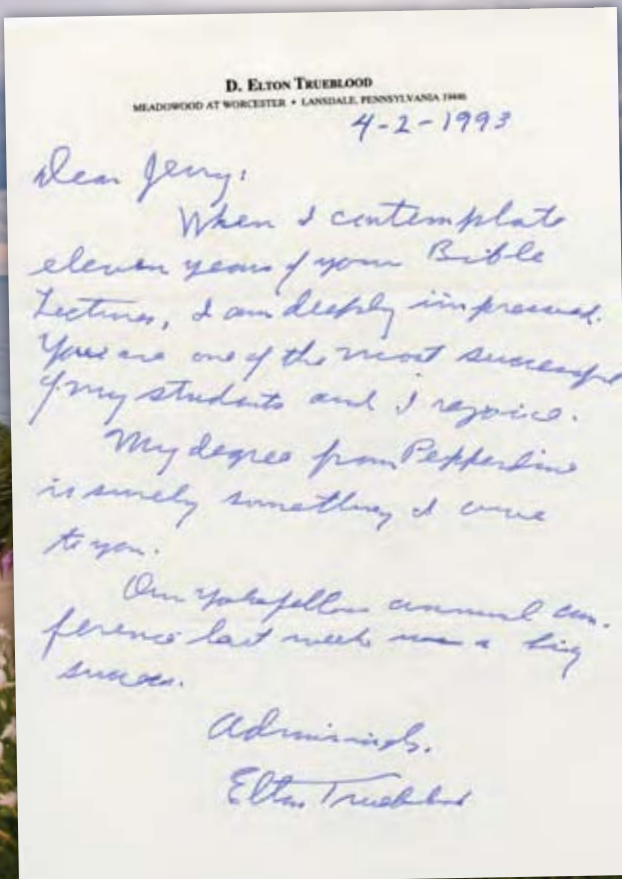 D. ELTON TRUEBLOOD
MEADOWOOD AT WORCESTER • LANSDALE, PENNSYLVANIA 19446
4-2-1993
Dear Jerry:
When I contemplate
eleven years of your Bible
Lectures, I am deeply impressed.
You are one of the most successful
of my students and I rejoice.
My degree from Pepperdine
is surely something I owe
to you.
Our Yokefellow annual con-
ference last week was a big
success.
Admiringly,
Elton Trueblood